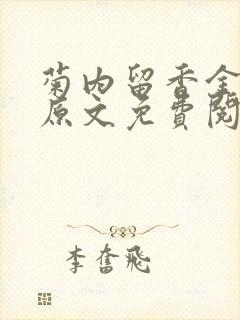 菊内留香全
原文免费阅
李奮飛